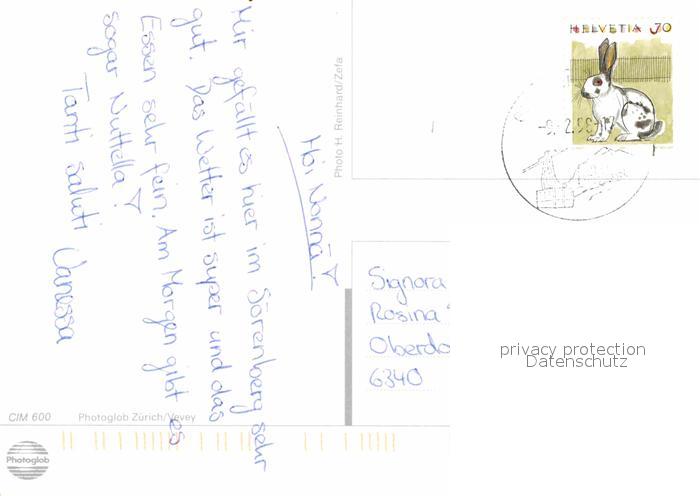 Hoi Nonna!
Mir gefällt es hier im Sörenberg sehr
gut. Das Wetter ist super und das
Essen sehr fein. Am Morgen gibt es
sogar Nuttella!
Tanti saluti Vanessa
Photo H. Reinhard/Zefa
HELVETIA 70
Signora
Rosina
Oberdo
6340
privacy protection
Datenschutz
CIM 600 Photoglob Zürich/Vevey
Photoglob